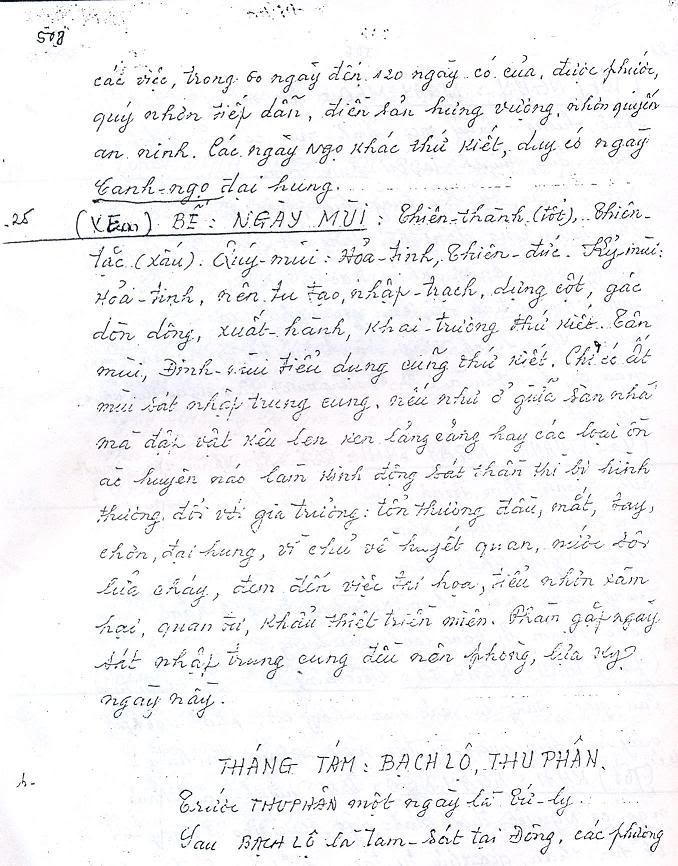 508
các việc, trong 60 ngày đến 120 ngày có của, được phước,
quý nhơn tiếp dẫn, điền sản hưng vượng, nhơn quyến
an ninh. Các ngày Ngọ khác thứ kiết, duy có ngày
Canh-ngọ đại hung.
25 (XEm) BẾ: NGÀY MÙI: Thiên-thành (tốt), Thiên-
tặc (xấu). Quý-mùi: Hỏa-tinh, Thiên-đức. Kỷ-mùi:
Hỏa-tinh, nên tu tạo, nhập-trạch, dựng cột, gác
đòn dông, xuất-hành, khai-trương thứ kiết. Tân
mùi, Đinh-mùi tiểu dụng cũng thứ kiết. Chỉ có Ất
mùi sát nhập trung cung, nếu như ở giữa sàn nhà
mà đập vật kêu len ken lảng cảng hay các loại ồn
ào huyên náo làm kinh động sát thần thì bị hình
thương, đối với gia trưởng: tổn thương đầu, mắt, tay,
chơn, đại hung, vì chủ về huyết quan, nước sôi
lửa cháy, đem đến việc tai họa, tiểu nhơn xâm
hại, quan tư, khẩu thiệt triền miên. Phàm gặp ngày
sát nhập trung cung đều nên phòng, lựa kỵ
ngày này.
THÁNG TÁM: BẠCH LỘ, THU PHÂN.
Trước THU PHÂN một ngày là Tứ-ly.
Sau BẠCH LỘ là tam-sát tại Đông, các phương